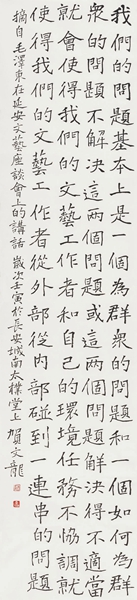 我們的問題基本上是一個為群眾的問題和一個如何為群
眾的問題不解決這兩個問題或這兩個問題解決得不適當
就會使得我們的文藝工作者和自己的環境任務不協調就
使得我們的文藝工作者從外部從內部碰到一連串的問題
摘自毛澤東在延安文藝座談會上的講話 歲次壬寅於長安城南太樸堂上 賀文龍